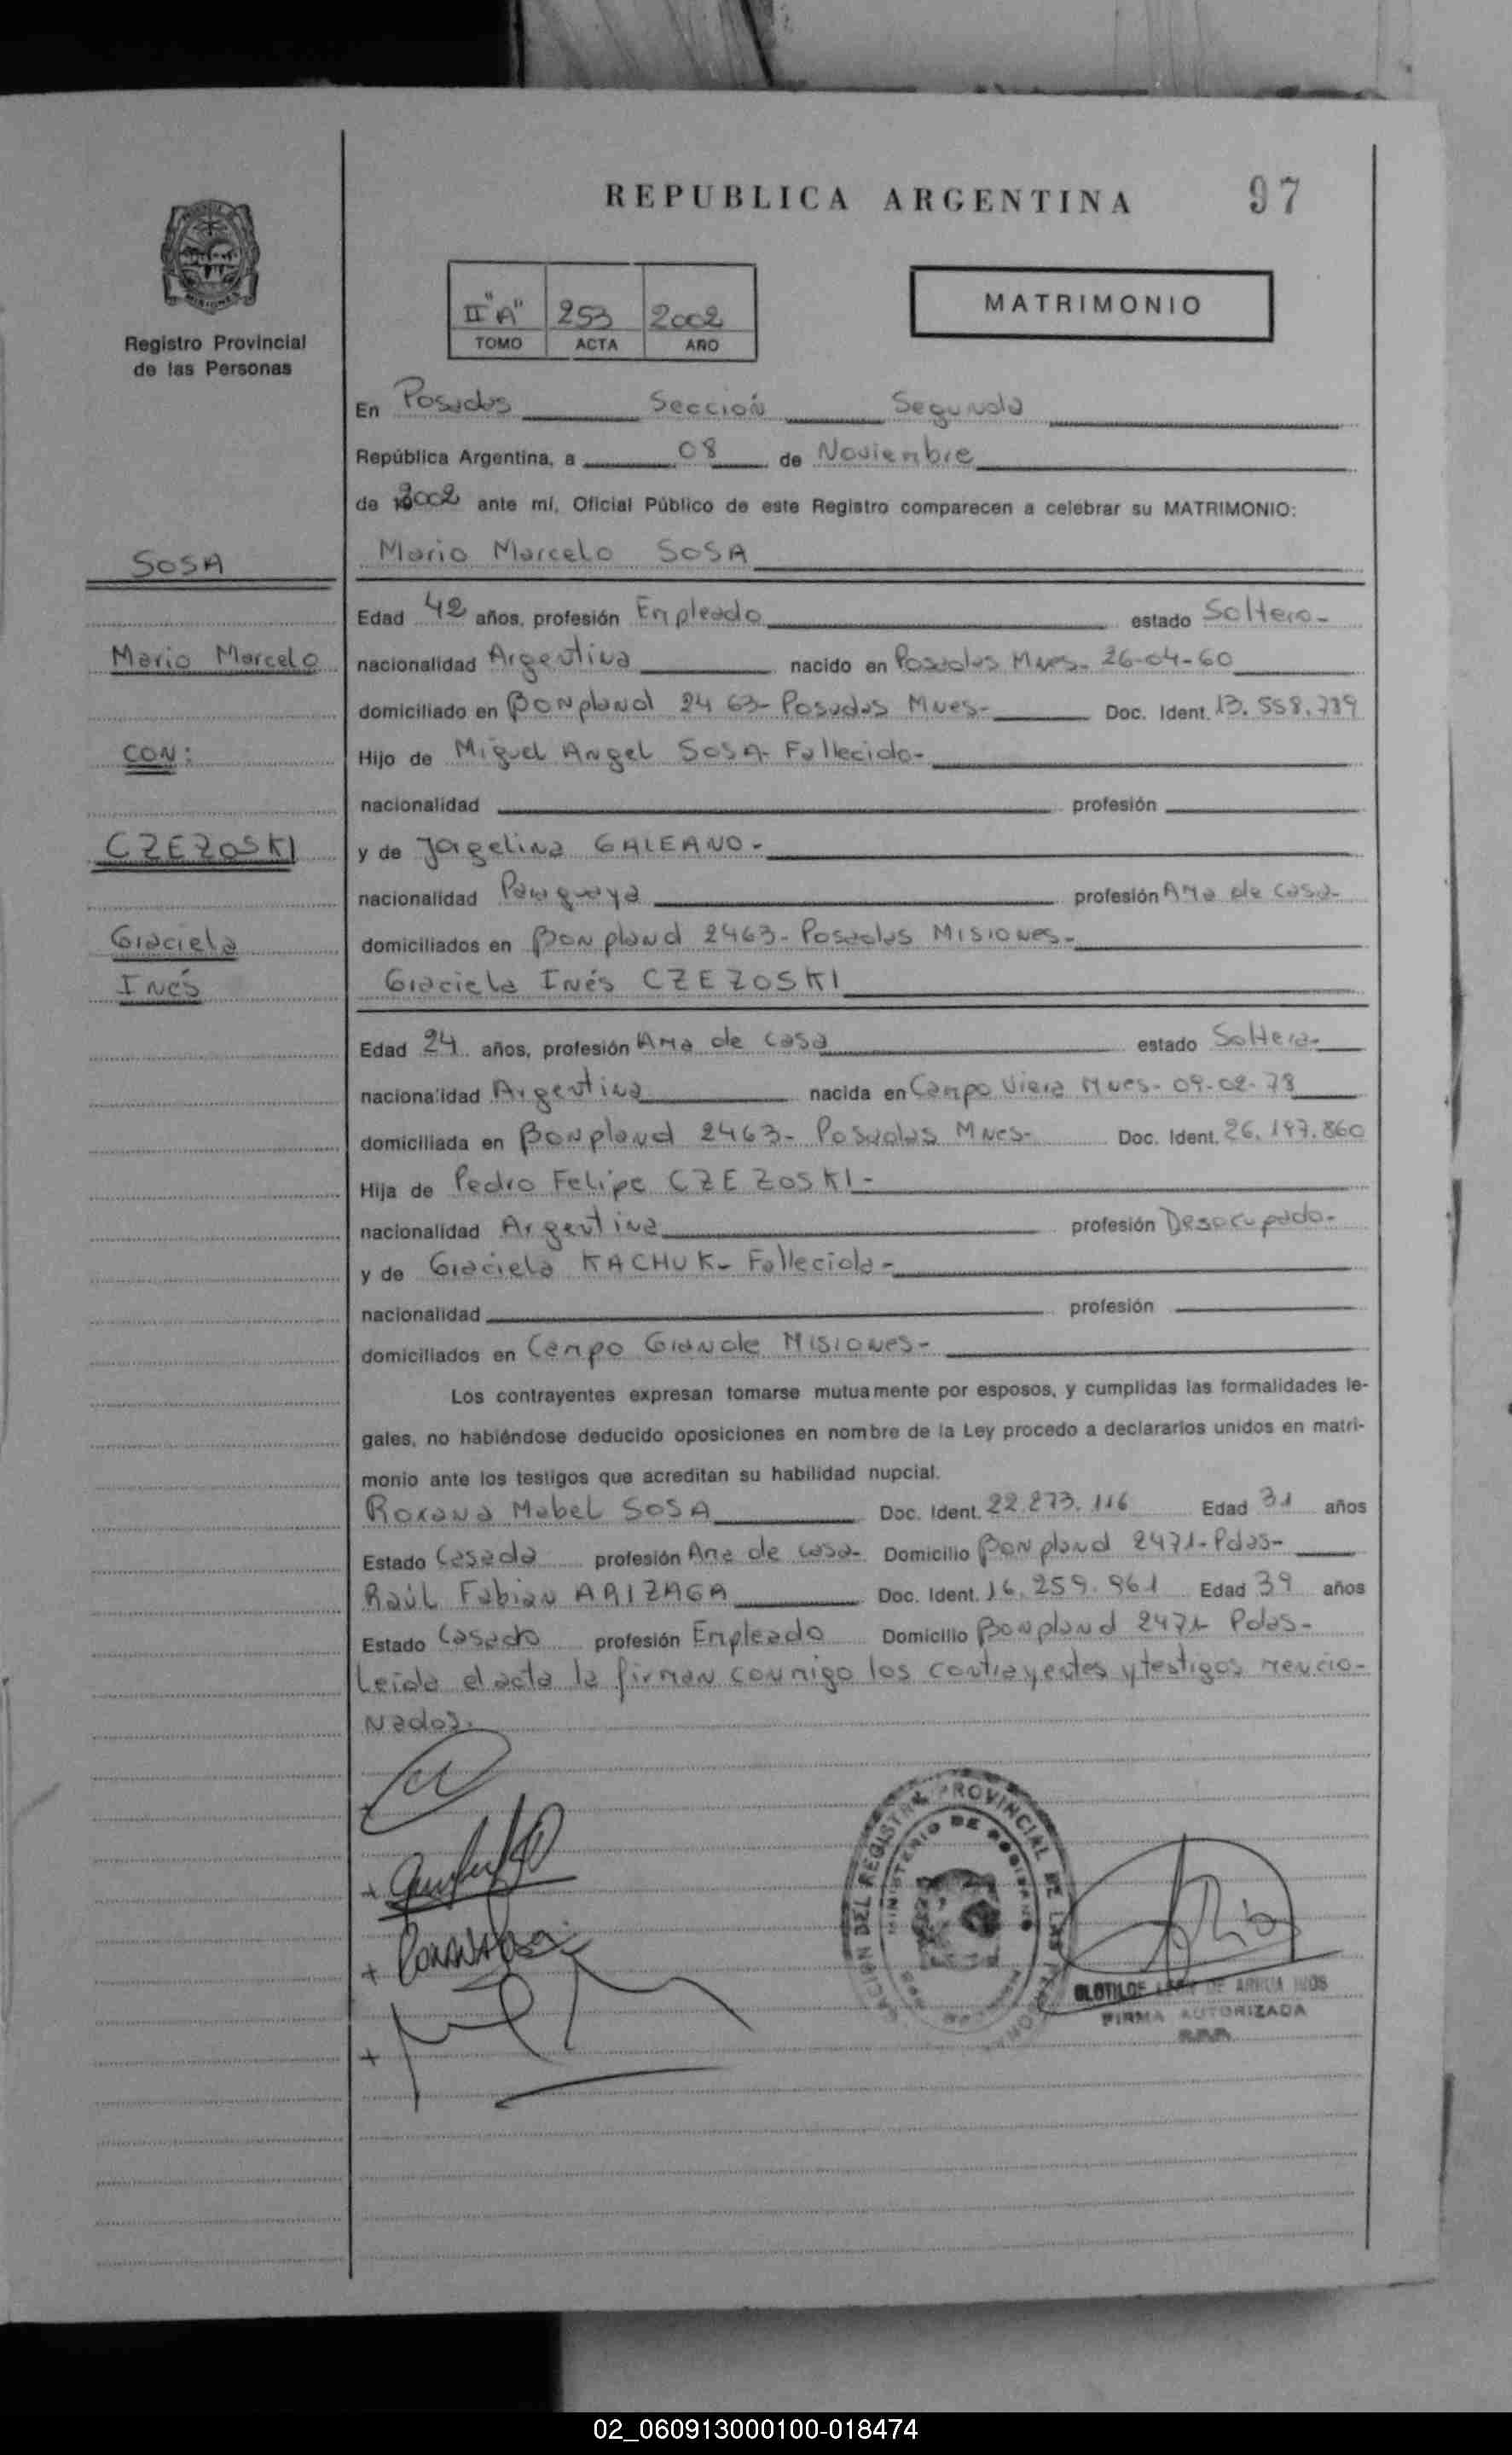 REPUBLICA ARGENTINA
97
II "A" 253 2002
TOMO ACTA AÑO
MATRIMONIO
Registro Provincial
de las Personas
En Posadas Sección Segunda
República Argentina, a 08 de Noviembre
de 2002 ante mí, Oficial Público de este Registro comparecen a celebrar su MATRIMONIO:
SOSA
Mario Marcelo SOSA
Edad 42 años, profesión Empleado estado Soltero-
Mario Marcelo
nacionalidad Argentina nacido en Posadas Mnes- 26-04-60
domiciliado en Bonpland 2463- Posadas Mnes- Doc. Ident. 13.558.789
CON:
Hijo de Miguel Angel SOSA- Fallecido-
nacionalidad profesión
CZEZOSKI
y de Jorgelina GALEANO-
nacionalidad Paraguaya profesión Ama de casa-
Graciela
domiciliados en Bonpland 2463- Posadas Misiones-
Inés
Graciela Inés CZEZOSKI
Edad 24 años, profesión Ama de casa estado Soltera-
nacionalidad Argentina nacida en Campo Viera Mnes- 09-02-78
domiciliada en Bonpland 2463- Posadas Mnes- Doc. Ident. 26.197.860
Hija de Pedro Felipe CZEZOSKI-
nacionalidad Argentina profesión Desocupado-
y de Graciela KACHUK- Fallecida-
nacionalidad profesión
domiciliados en Campo Grande Misiones-
Los contrayentes expresan tomarse mutuamente por esposos, y cumplidas las formalidades le-
gales, no habiéndose deducido oposiciones en nombre de la Ley procedo a declararlos unidos en matri-
monio ante los testigos que acreditan su habilidad nupcial.
Roxana Mabel SOSA Doc. Ident. 22.273.116 Edad 31 años
Estado Casada profesión Ama de casa- Domicilio Bonpland 2471-Pdas-
Raúl Fabian ARIZAGA Doc. Ident. 16.259.961 Edad 39 años
Estado Casado profesión Empleado Domicilio Bonpland 2471 Pdas-
Leída el acta la firman conmigo los contrayentes y testigos mencio-
nados.
REGISTRO PROVINCIAL DE LAS
MINISTERIO DE GOBIERNO
CLOTILDE DE
FIRMA AUTORIZADA
02_060913000100-018474